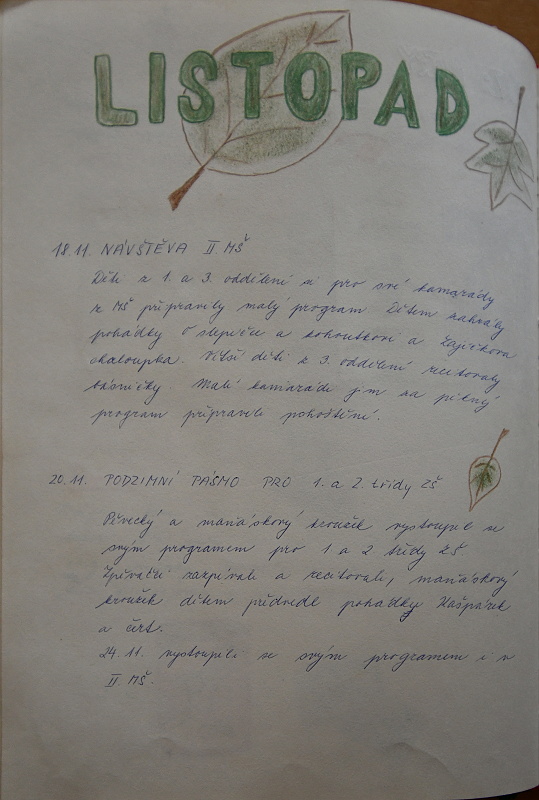 LISTOPAD
18.11. NÁVŠTĚVA II. MŠ
Děti z 1. a 3. oddělení si pro své kamarády
z MŠ připravily malý program. Dětem zahrály
pohádky O slepičce a kohoutkovi a Zajíčkova
chaloupka. Větší děti z 3. oddělení recitovaly
básničky. Malí kamarádi jim za pěkný
program připravili pohoštění.
20.11. PODZIMNÍ PÁSMO PRO 1. a 2. třídy ZŠ
Pěvecký a maňáskový kroužek vystoupil se
svým programem pro 1 a 2 třídy ZŠ
Zpěváčci zazpívali a recitovali, maňáskový
kroužek dětem předvedl pohádky Kašpárek
a čert.
24.11. vystoupili se svým programem i v
II. MŠ.